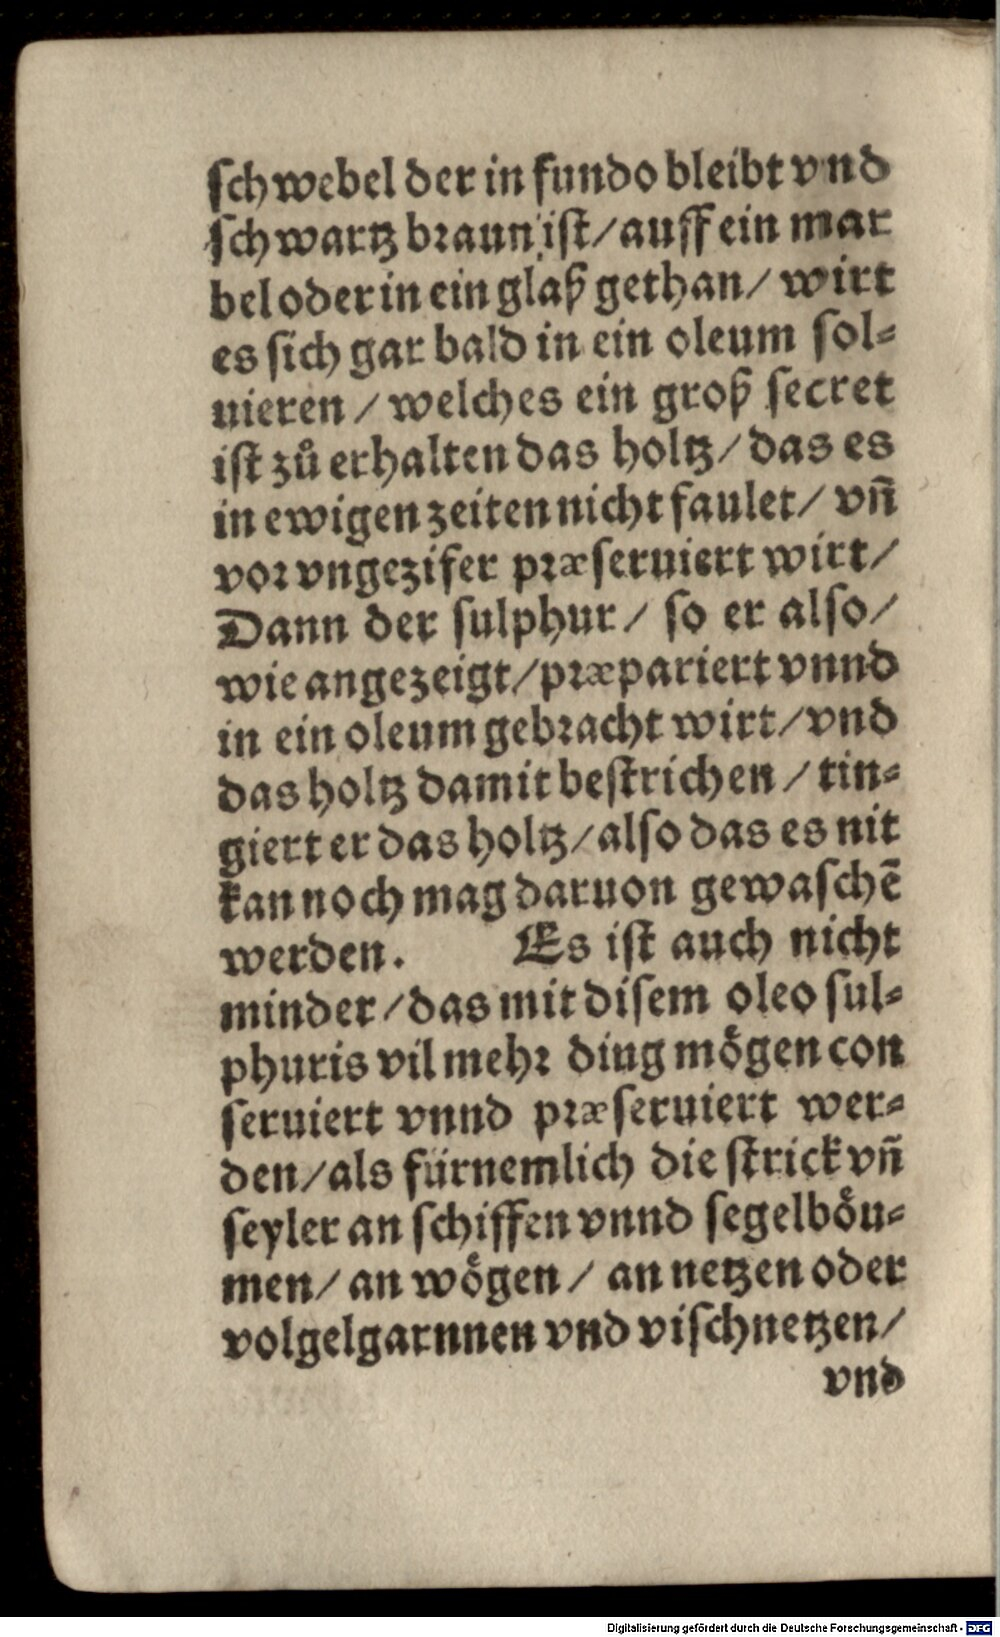 ſchwebel der in fundo bleibt vnd
ſchwartz braun iſt/ auff ein mar
bel oder in ein glaß gethan/ wirt
es ſich gar bald in ein oleum ſol⸗
uieren / welches ein groß ſecret
iſt zů erhalten das holtz/ das es
in ewigen zeiten nicht faulet/ vñ
vor vngezifer præſeruiert wirt/
Dann der ſulphur/ ſo er alſo/
wie angezeigt/ præpariert vnnd
in ein oleum gebracht wirt/ vnd
das holtz damit beſtrichen / tin⸗
giert er das holtz/ alſo das es nit
kan noch mag daruon gewaſchẽ
werden. Es iſt auch nicht
minder/ das mit diſem oleo ſul⸗
phuris vil mehr ding mögen con
ſeruiert vnnd præſeruiert wer⸗
den/ als fürnemlich die ſtrick vñ
ſeyler an ſchiffen vnnd ſegelböu⸗
men/ an wögen / an netzen oder
volgelgarnnen vnd viſchnetzen/
vnd
Digitalisierung gefördert durch die Deutsche Forschungsgemeinschaft - DFG